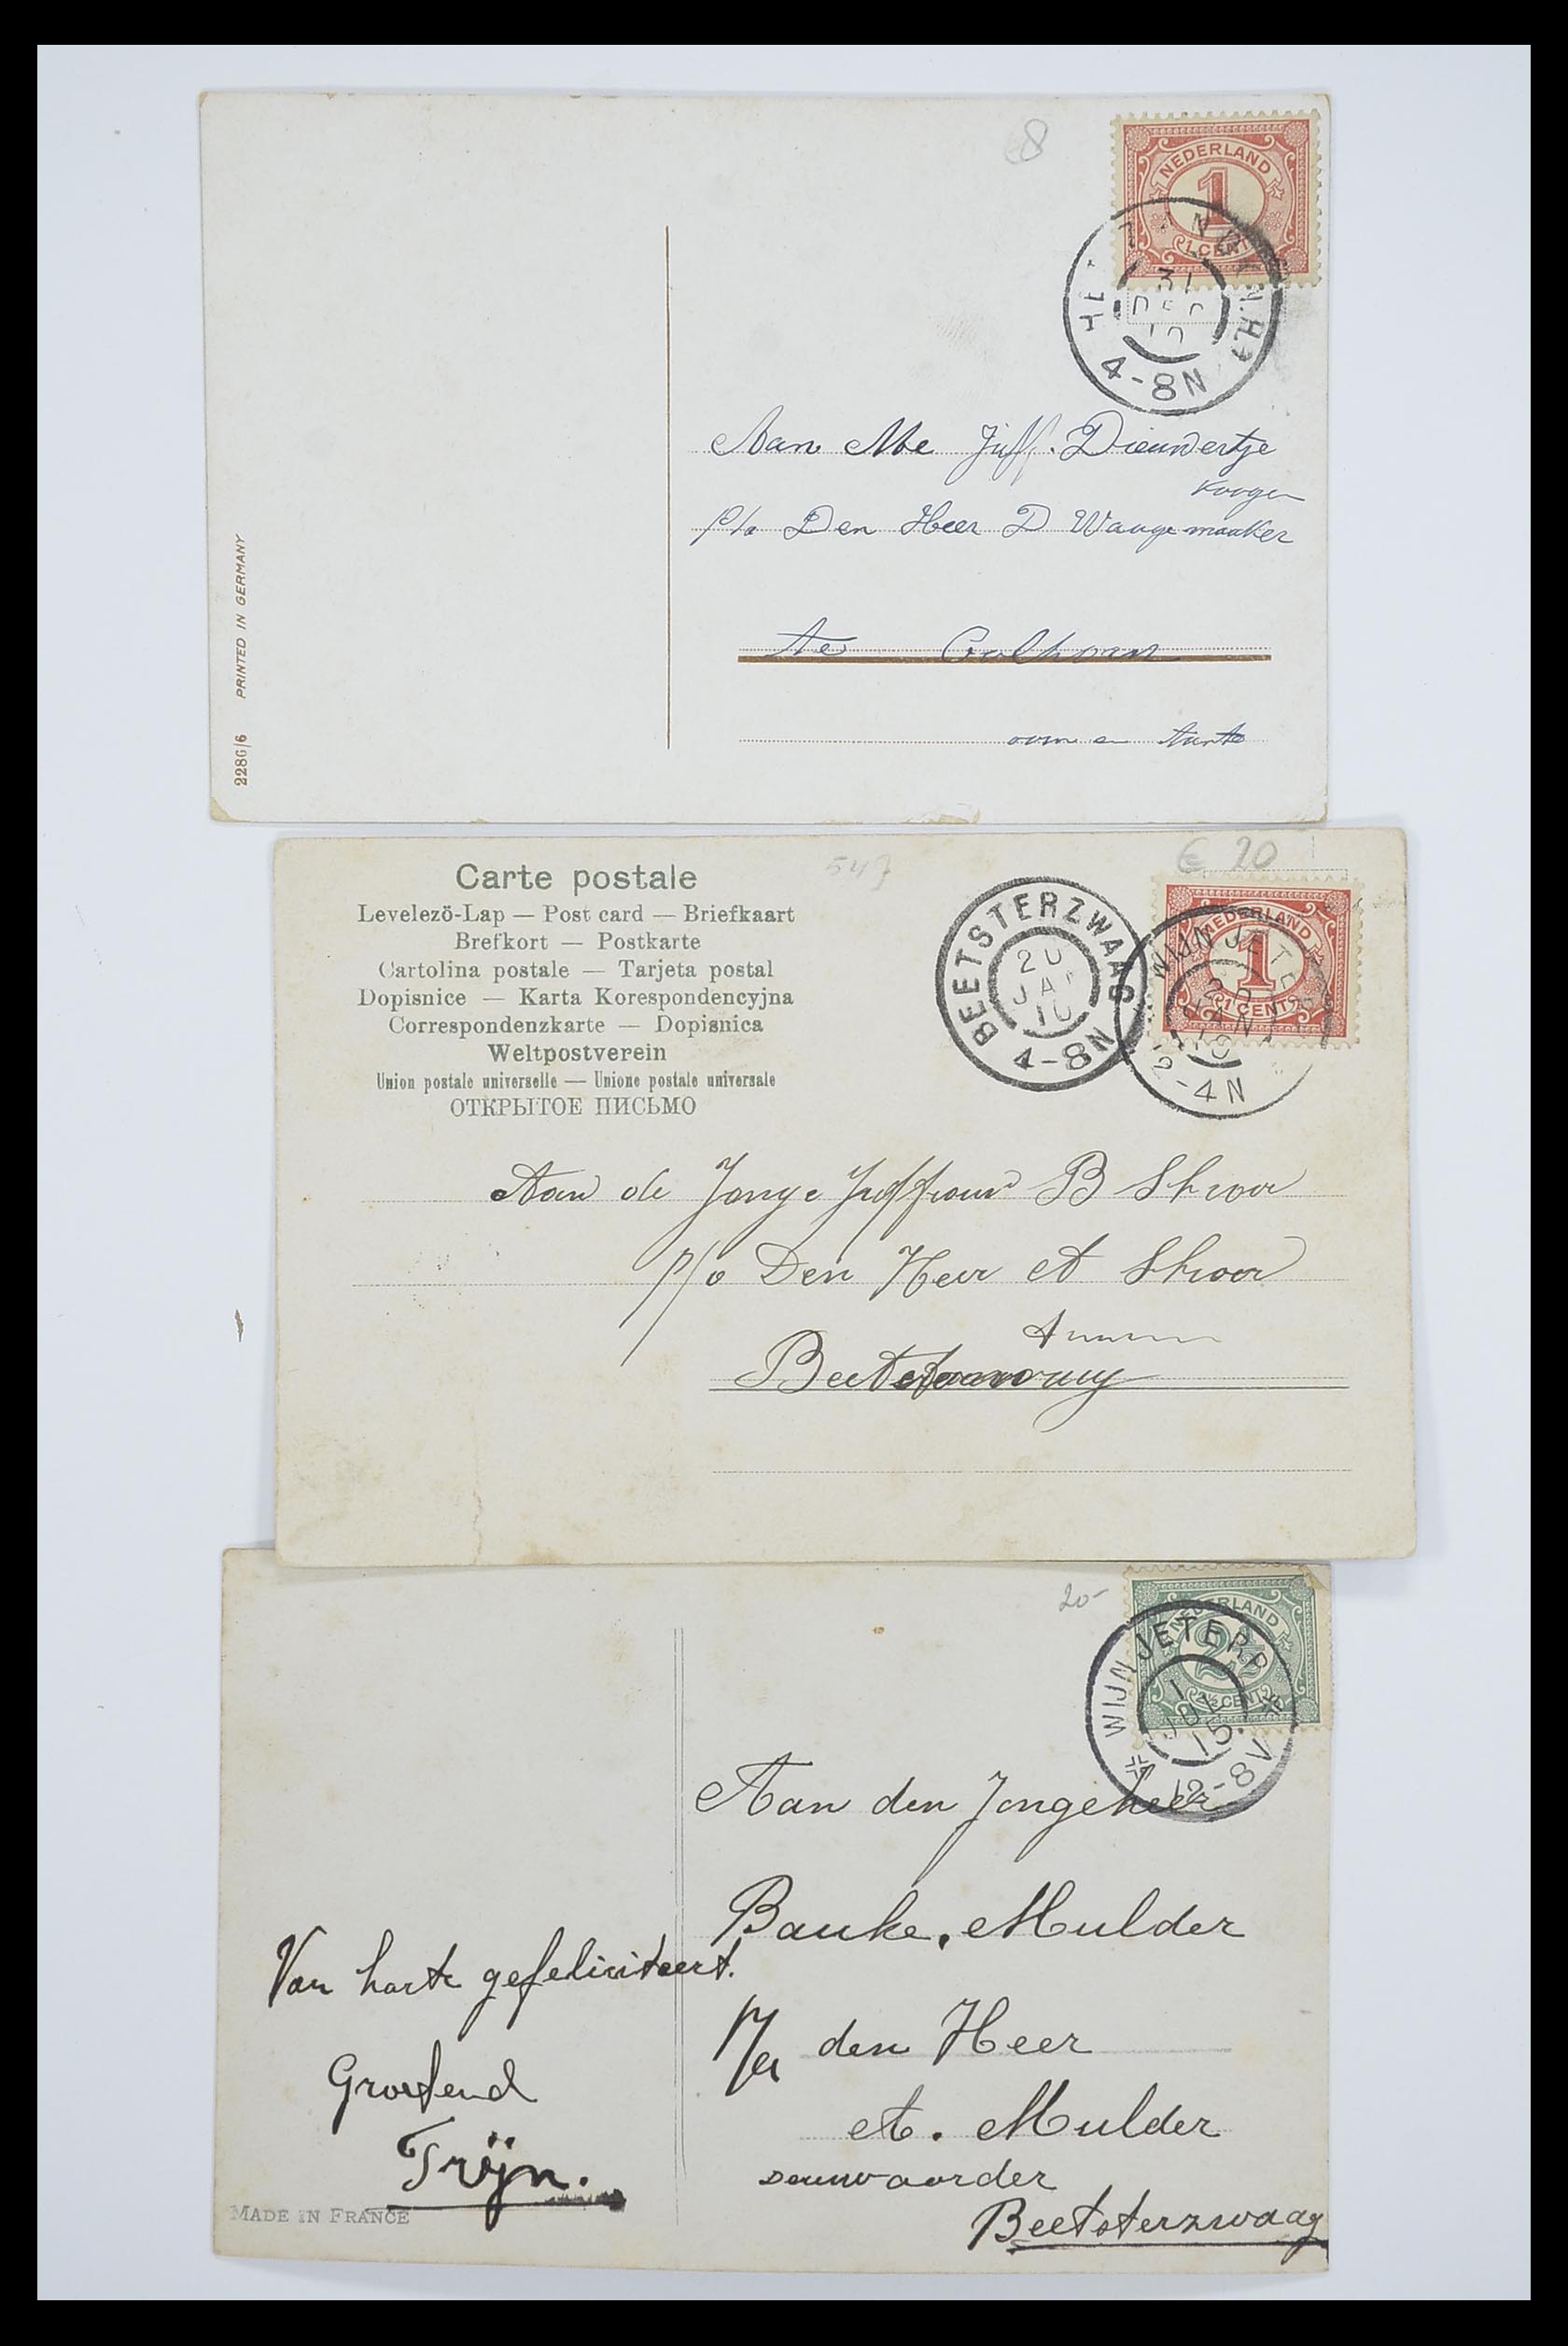 8
NEDERLAND
1
1 CENT
31
DEC
10
4-8N
Aan Me Juff. Dieuwertje
Koogen
p/a Den Heer D Waagemaaker
te Colhorn
oom en tante
PRINTED IN GERMANY
228G/6
Carte postale
Levelezö-Lap — Post card — Briefkaart
Brefkort — Postkarte
Cartolina postale — Tarjeta postal
Dopisnice — Karta Korespondencyjna
Correspondenzkarte — Dopisnica
Weltpostverein
Union postale universelle — Unione postale universale
ОТКРЫТОЕ ПИСЬМО
547
€ 20
NEDERLAND
1
1 CENT
BEETSTERZWAAG
20
JAN
10
4-8N
WIJNJETERP
20
JAN
10
2-4N
Aan de Jonge Juffrouw B
p/a Den Heer A
20-
NEDERLAND
2½
2½ CENT
WIJNJETERP
1
JUL
15
12-8V
Aan den Jongeheer
Bauke. Mulder
p/a den Heer
A. Mulder
Deurwaarder
Beetsterzwaag
Van harte gefeliciteert.
Groetend
Trijn.
MADE IN FRANCE